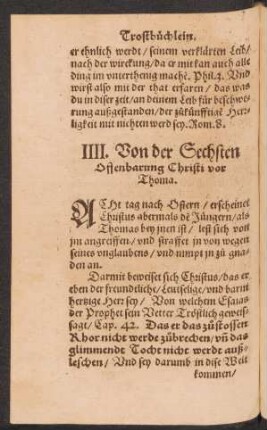 Trostbüchlein.
er ehnlich werdt / seinem verklärten Leib /
nach der wirckung / da er mit kan auch alle
ding im vnterthenig machē. Phil.3. Vnd
wirst also mit der that erfaren / das was
du in diser zeit / an deinem Leib für beschwe-
rung außgestanden / der zůkünfftigē Herr-
ligkeit mit nichten werd sey. Rom.8.
IIII. Von der Sechsten
Offenbarung Christi vor
Thoma.
ACht tag nach Ostern / erscheinet
Christus abermals dē Jüngern / als
Thomas bey jnen ist / lest sich von
jm angreiffen / vnd straffet jn von wegen
seines vnglaubens / vnd nimpt jn zů gna-
den an.
Darmit beweiset sich Christus / das er
eben der freundliche / Leutselige / vnd barm
hertzige Herr sey / Von welchem Esaias
der Prophet sein Vetter Tröstlich geweis-
sagt / Cap. 42. Das er das zůstossen
Rhor nicht werde zůbrechen / vñ das
glimmendt Tocht nicht werde auß-
leschen / Vnd sey darumb in dise Welt
kommen /